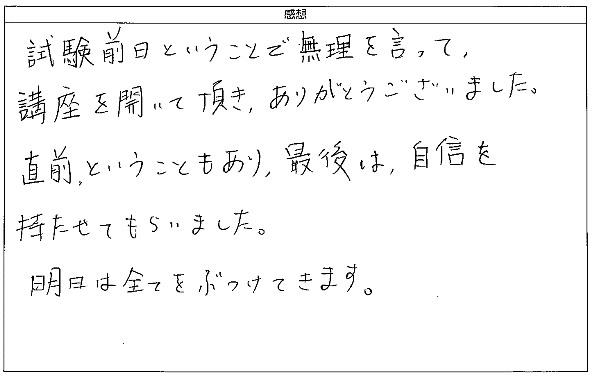 感想
試験前日ということで無理を言って,
講座を開いて頂き,ありがとうございました。
直前,ということもあり,最後は,自信を
持たせてもらいました。
明日は全てをぶつけてきます。